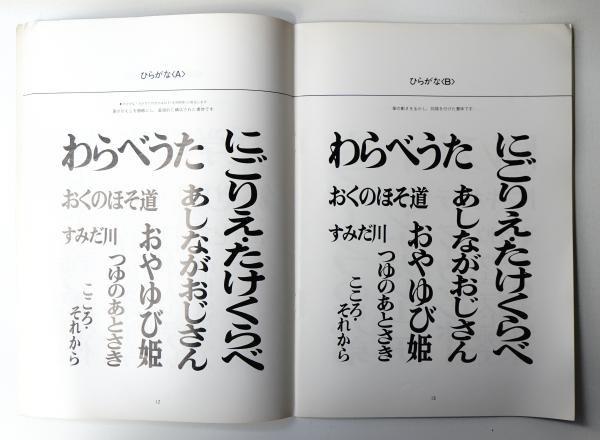 ひらがな〈A〉
わらべうた
おくのほそ道
すみだ川
にごりえ・たけくらべ
あしながおじさん
おやゆび姫
つゆのあとさき
こころ・
それから
12
ひらがな〈B〉
筆の動きを生かし、抑揚を付けた書体です。
わらべうた
おくのほそ道
すみだ川
にごりえ・たけくらべ
あしながおじさん
おやゆび姫
つゆのあとさき
こころ・
それから